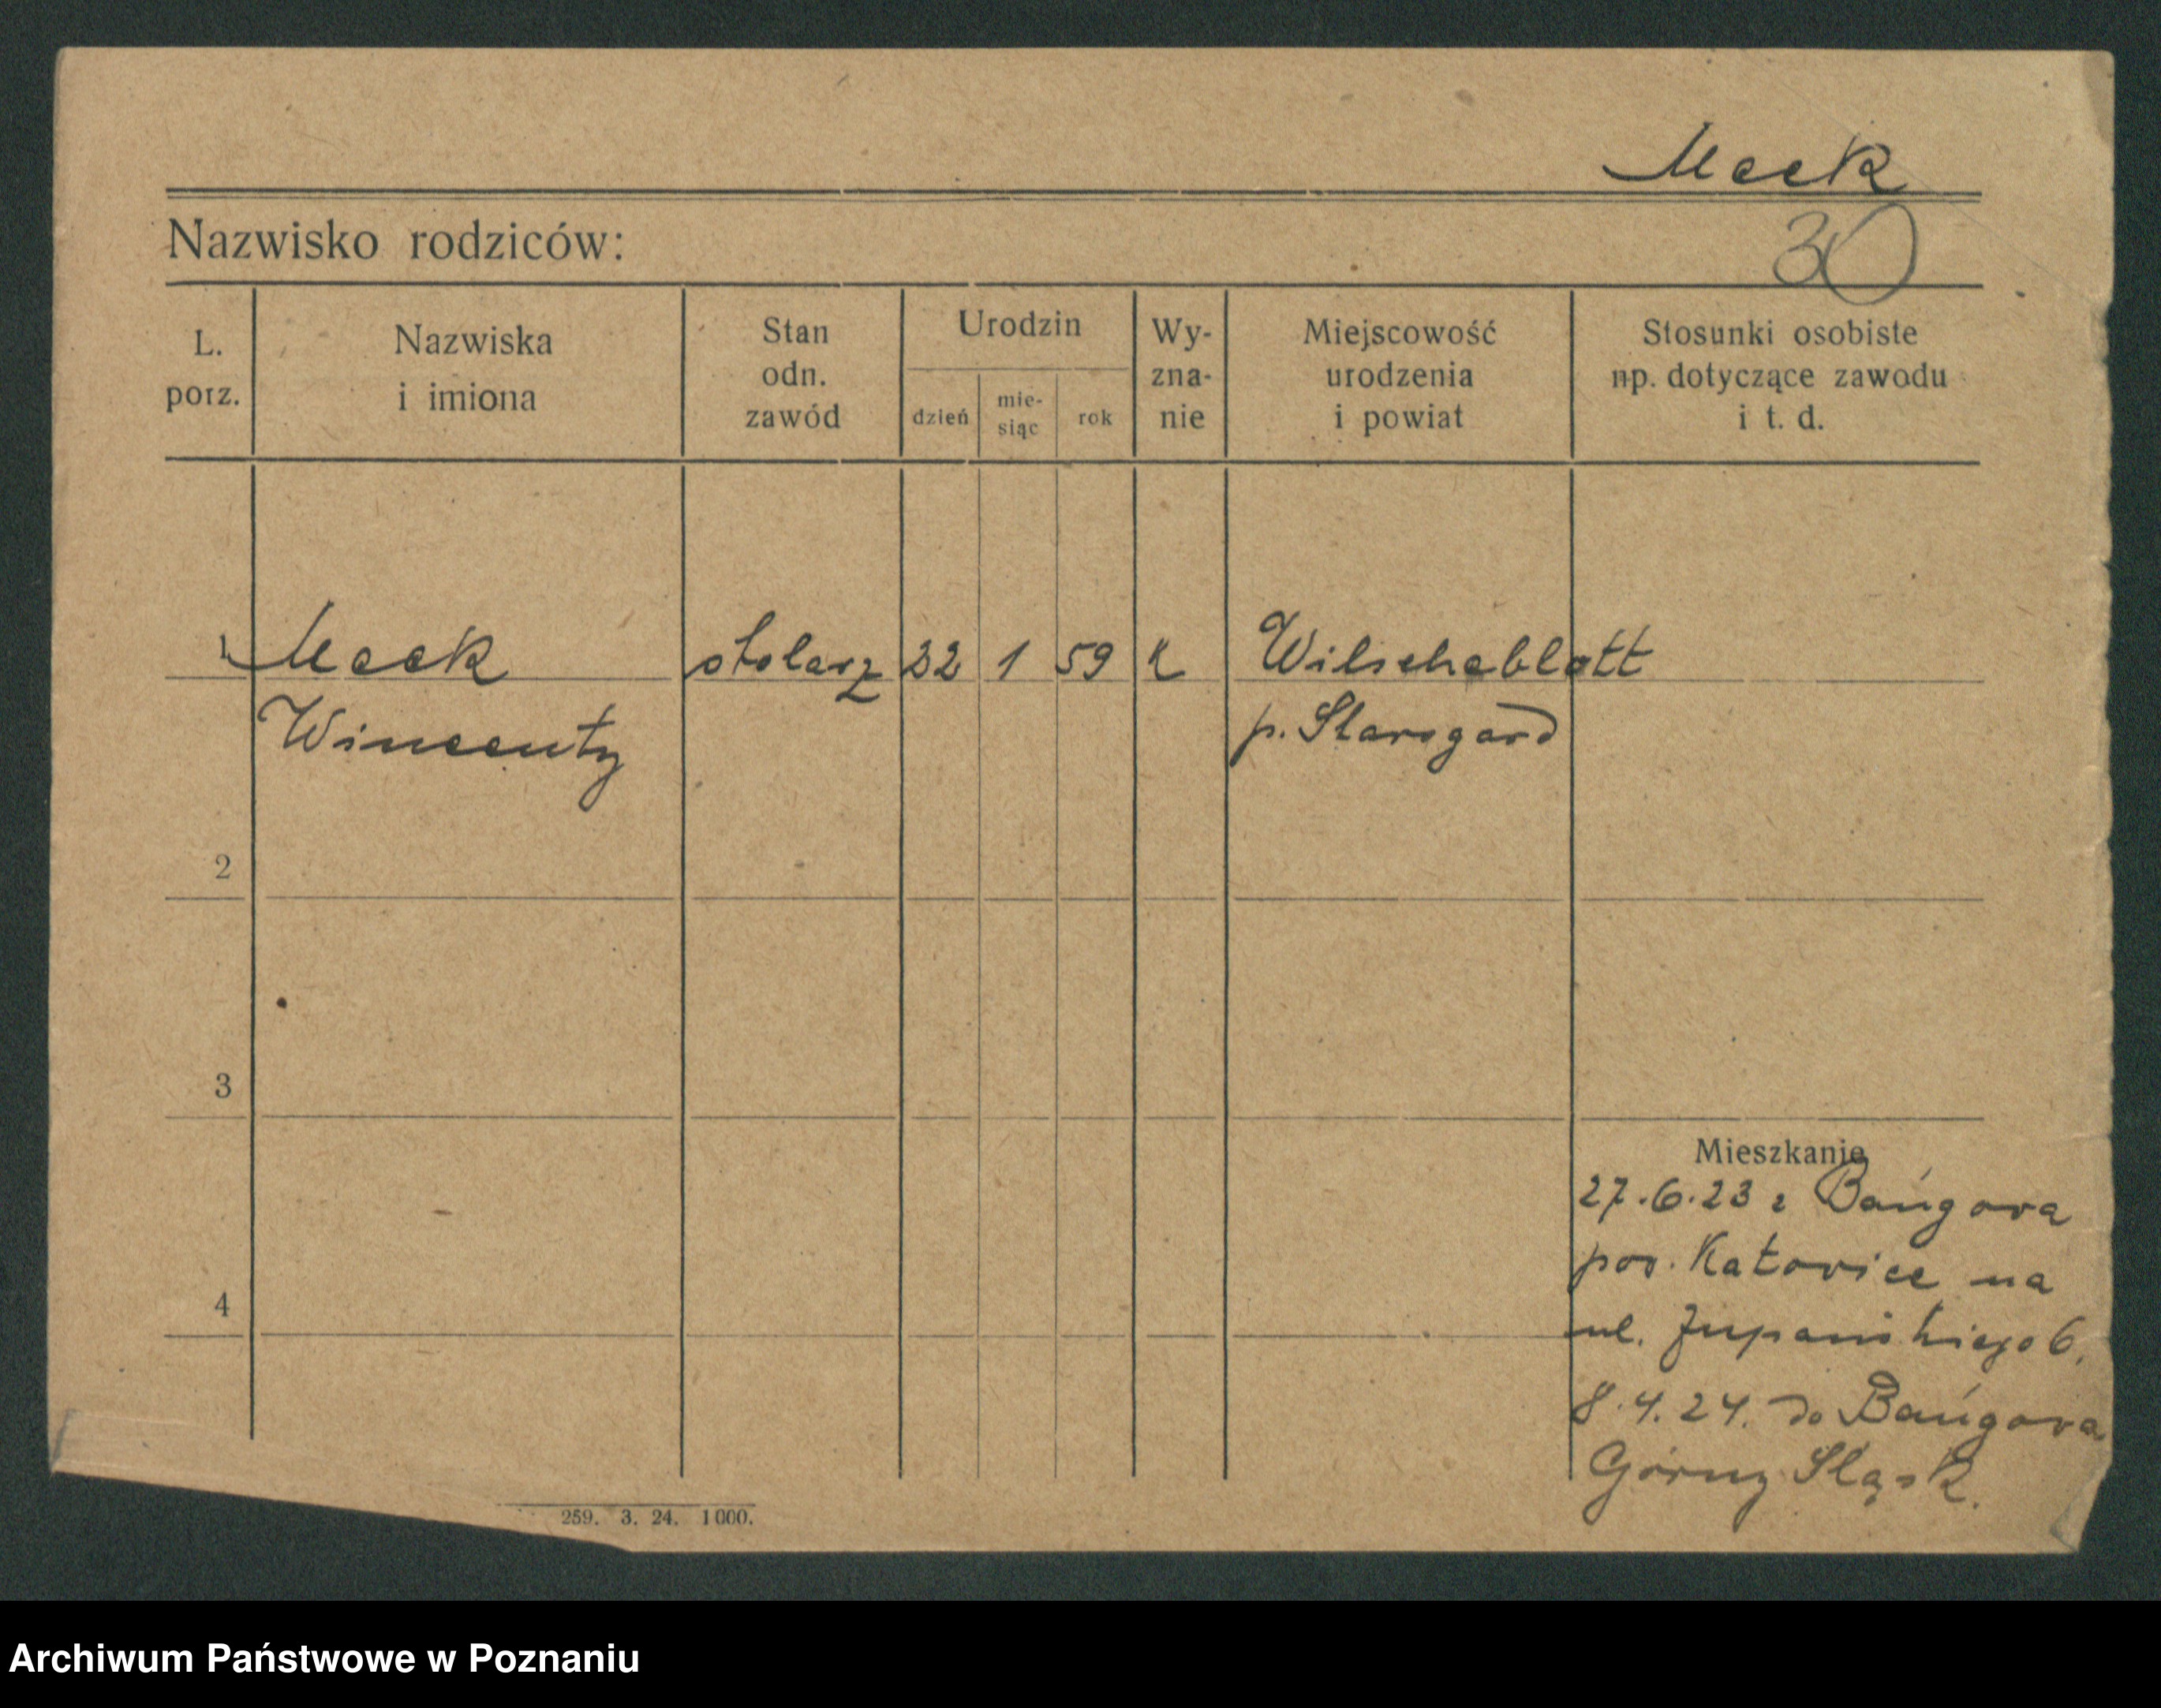 Meek
Nazwisko rodziców:
30
L. porz.
Nazwiska i imiona
Stan odn. zawód
Urodzin
dzień
mie-
siąc
rok
Wy-
zna-
nie
Miejscowość
urodzenia
i powiat
Stosunki osobiste
np. dotyczące zawodu
i t. d.
1 Meek stolarz 22 1 59 K Wilscheblott
Wincenty p. Starogard
2
3
Mieszkanie
27.6.23 z Bańgova
pow. Katovice na
4
ul. Żupańskiego 6.
8.4.24. do Bańgova
Górny Śląsk.
259. 3. 24. 1000.
Archiwum Państwowe w Poznaniu